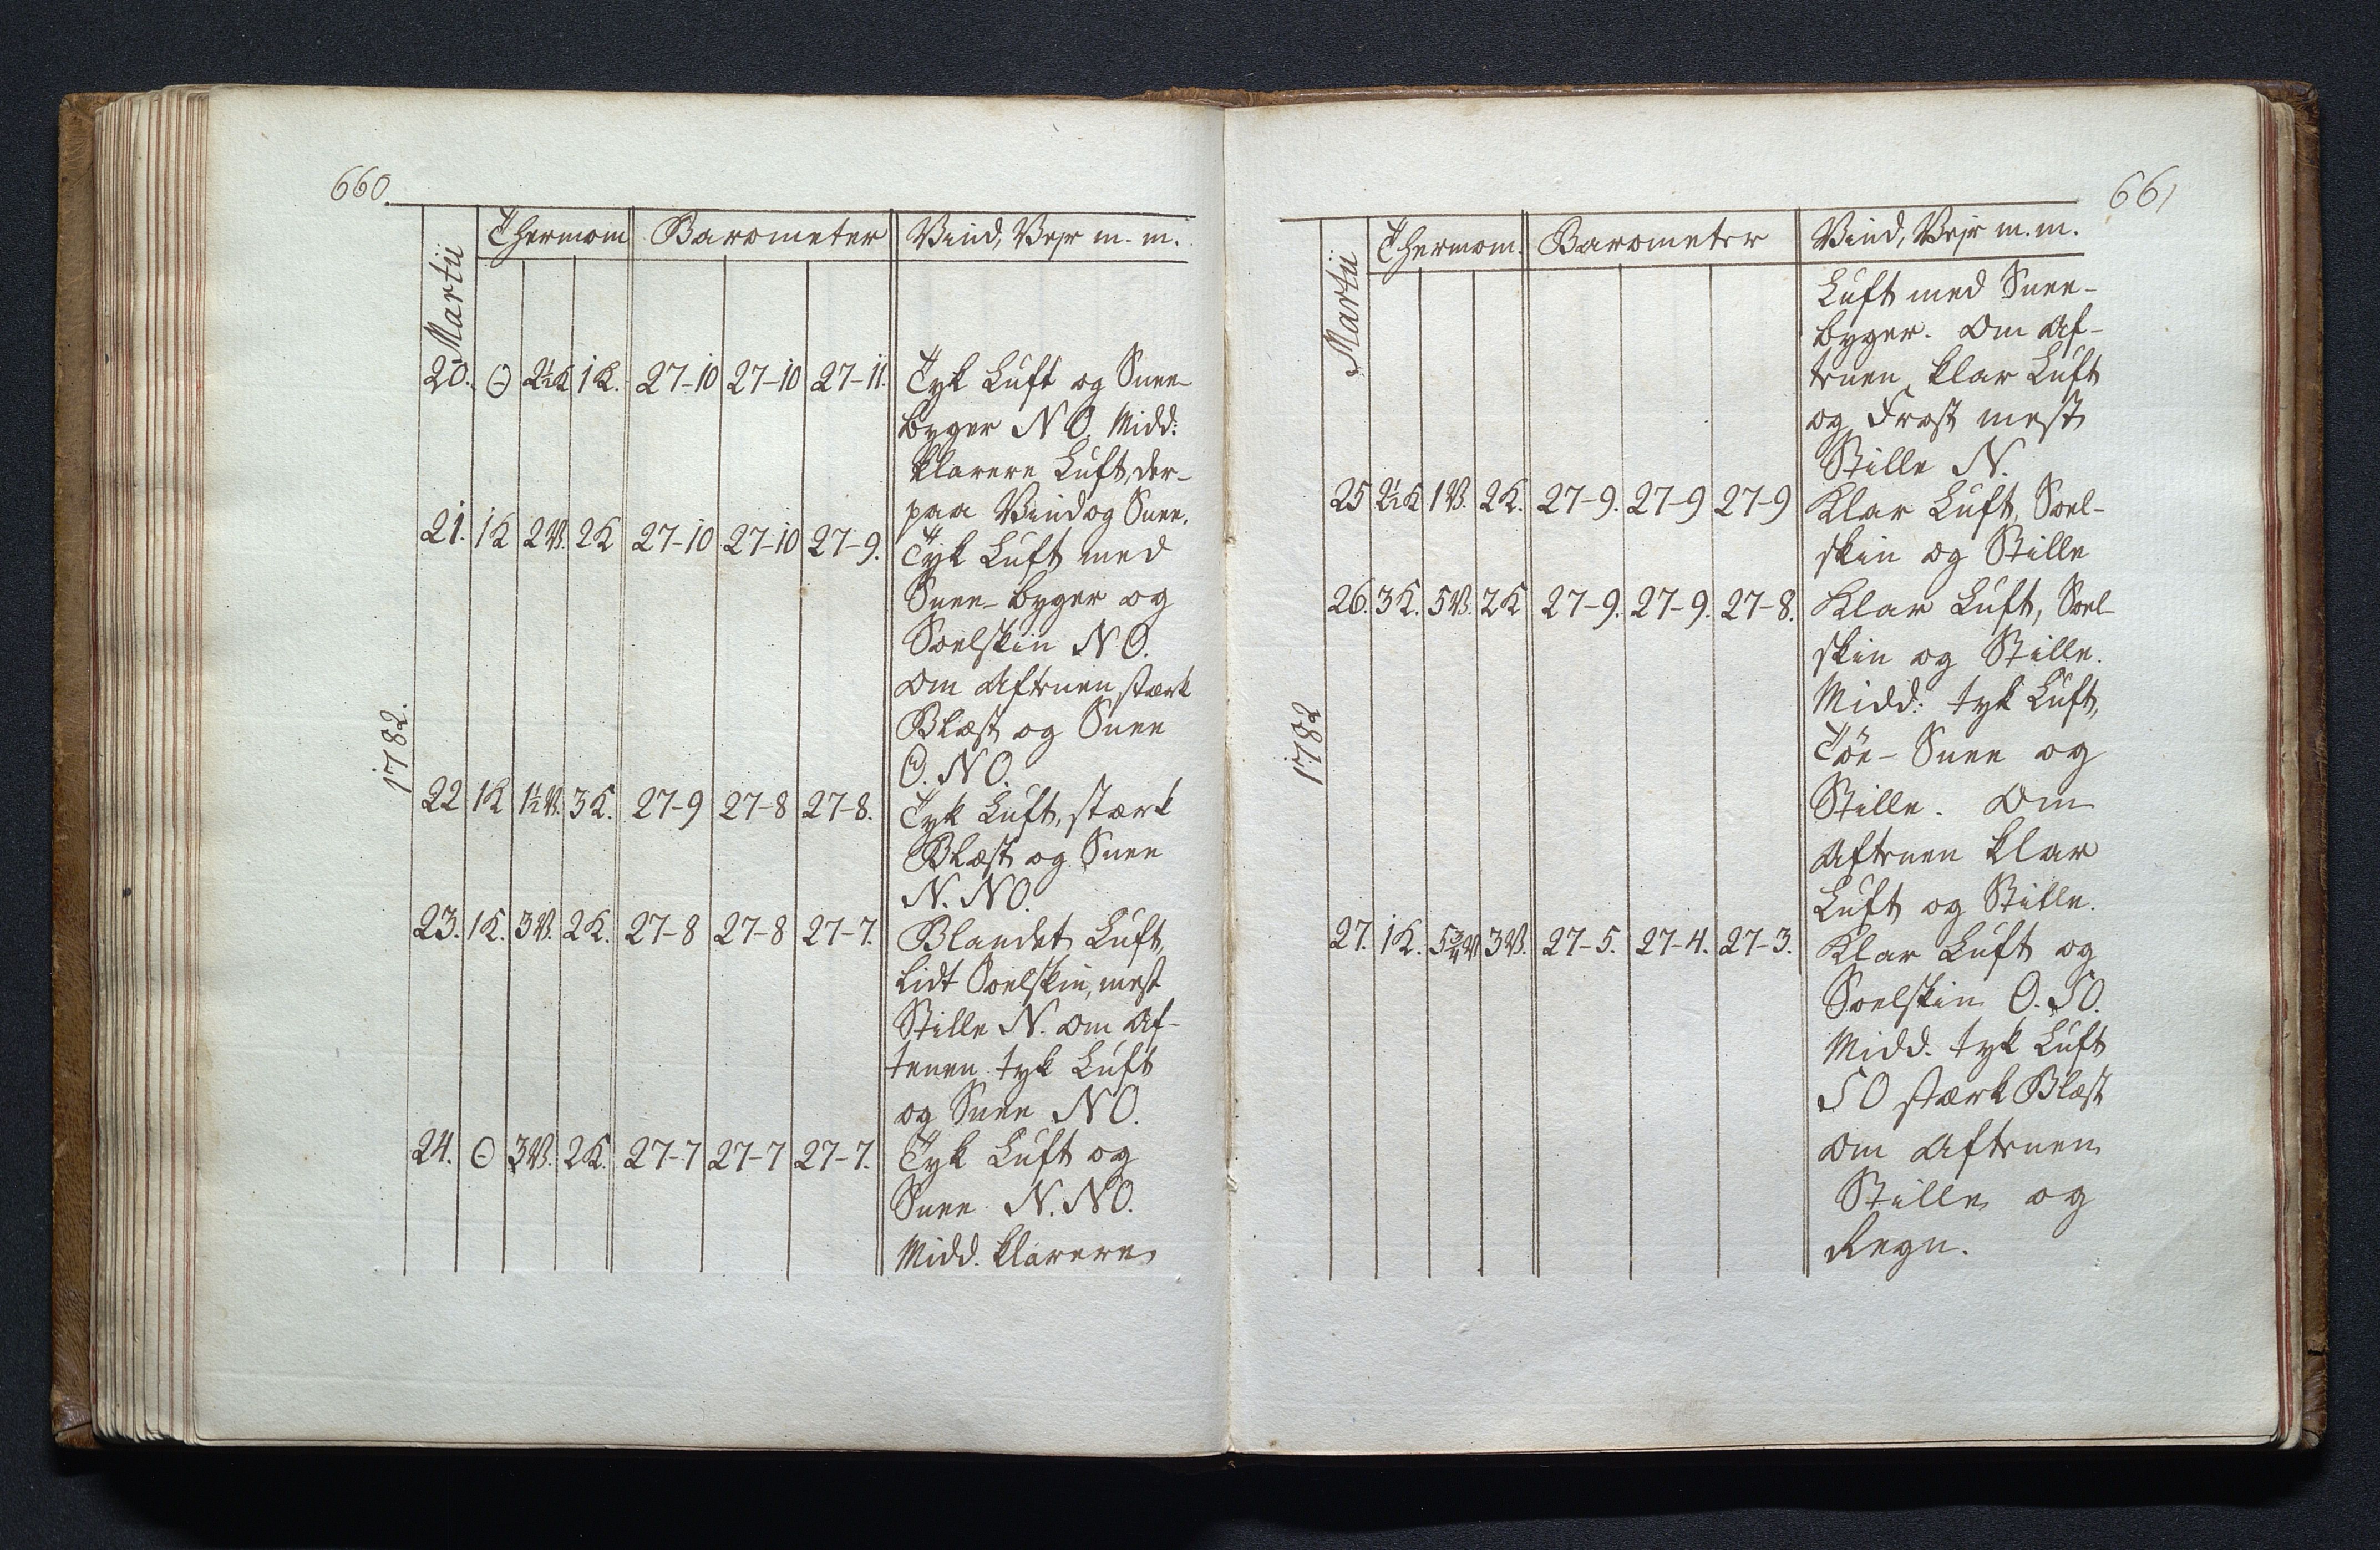 660.
Martii
Thermom Barometer Vind, Vejr m. m.
1782.
20. Θ 2½K 1K. 27-10 27-10 27-11. Tyk Luft og Snee-
byger NO. Midd:
klarere Luft, der-
paa Vind og Snee.
21. 1K 2V. 2K 27-10 27-10 27-9. Tyk Luft med
Snee-byger og
Soelskin NO.
Om Aftenen stærk
Blæst og Snee
O. NO.
22 1K 1½V. 3K. 27-9 27-8 27-8. Tyk Luft, stærk
Blæst og Snee
N. NO.
23. 1K. 3V. 2K. 27-8 27-8 27-7. Blandet Luft,
lidt Soelskin, mest
Stille N. Om Af-
tenen tyk Luft
og Snee NO.
24. Θ 3V. 2K. 27-7 27-7 27-7. Tyk Luft og
Snee N. NO.
Midd. klarere
661
Martii
Thermom. Barometer Vind, Vejr m. m.
1782
Luft med Snee-
byger. Om Af-
tenen klar Luft
og Frost mest
Stille N.
25 2½K 1V. 2K. 27-9. 27-9 27-9 Klar Luft, Soel-
skin og Stille
26. 3K. 5V. 2K 27-9. 27-9. 27-8. Klar Luft, Soel-
skin og Stille.
Midd: tyk Luft,
Töe-Snee og
Stille. Om
Aftenen klar
Luft og Stille.
27. 1K. 5¾V 3V. 27-5. 27-4. 27-3. Klar Luft og
Soelskin O. SO.
Midd. tyk Luft
SO stærk Blæst
Om Aftenen
Stille og
Regn.